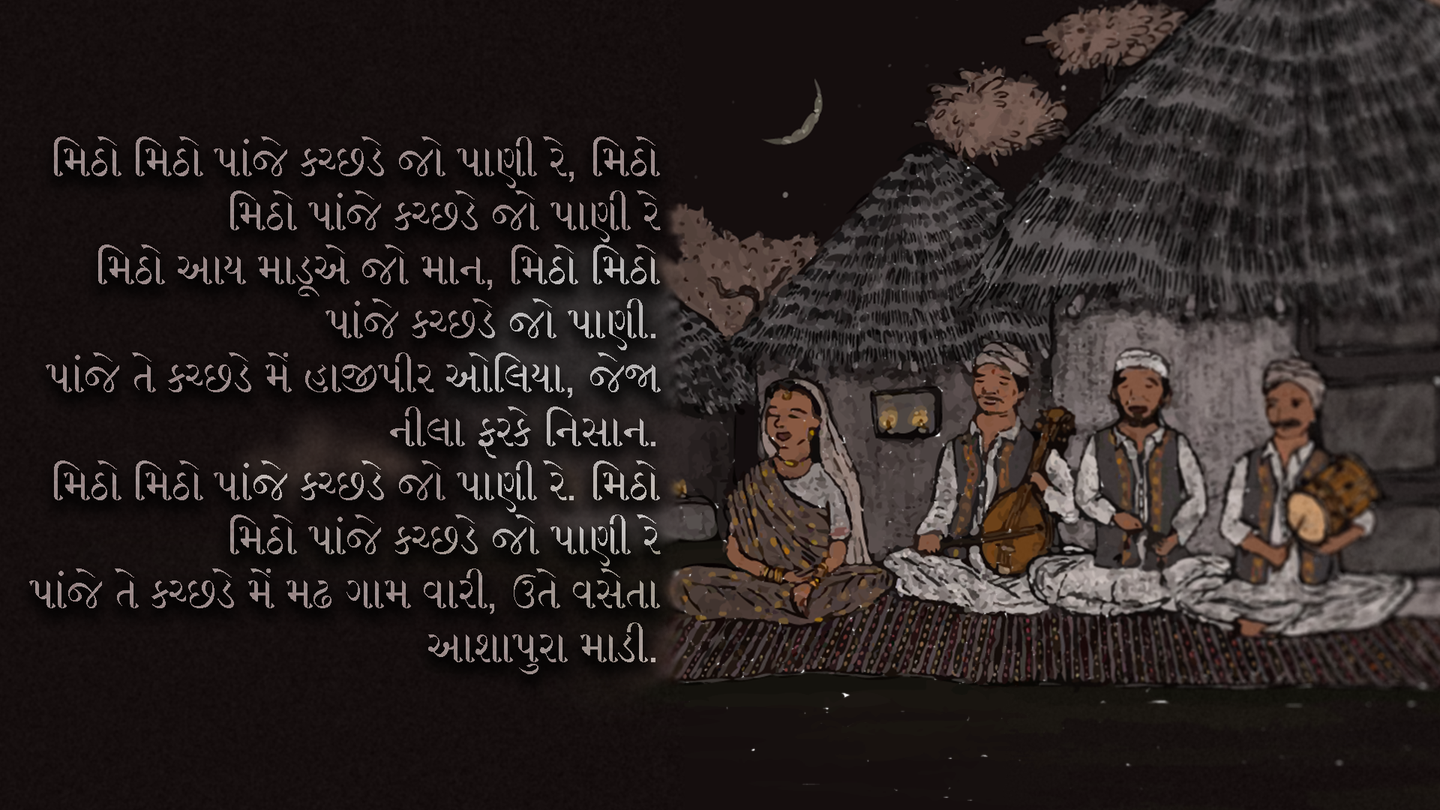 મિઠો મિઠો પાંજે કચ્છડે જો પાણી રે, મિઠો
મિઠો પાંજે કચ્છડે જો પાણી રે
મિઠો આય માડૂએ જો માન, મિઠો મિઠો
પાંજે કચ્છડે જો પાણી.
પાંજે તે કચ્છડે મેં હાજીપીર ઓલિયા, જેજા
નીલા ફરકે નિસાન.
મિઠો મિઠો પાંજે કચ્છડે જો પાણી રે. મિઠો
મિઠો પાંજે કચ્છડે જો પાણી રે
પાંજે તે કચ્છડે મેં મઢ ગામ વારી, ઉતે વસેતા
આશાપુરા માડી.